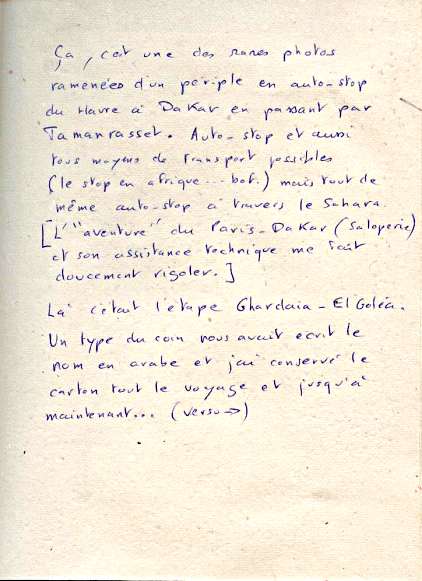 Ça, c'est une des rares photos
ramenées d'un périple en auto-stop
du Havre à Dakar en passant par
Tamanrasset. Auto-stop et aussi
tous moyens de transport possibles
(le stop en afrique... bof.) mais tout de
même auto-stop à travers le Sahara.
[L'"aventure" du Paris-Dakar (Saloperie)
et son assistance technique me fait
doucement rigoler.]
Là c'était l'étape Ghardaia - El Goléa.
Un type du coin nous avait ecrit le
nom en arabe et j'ai conservé le
carton tout le voyage et jusqu'à
maintenant... (verso →)